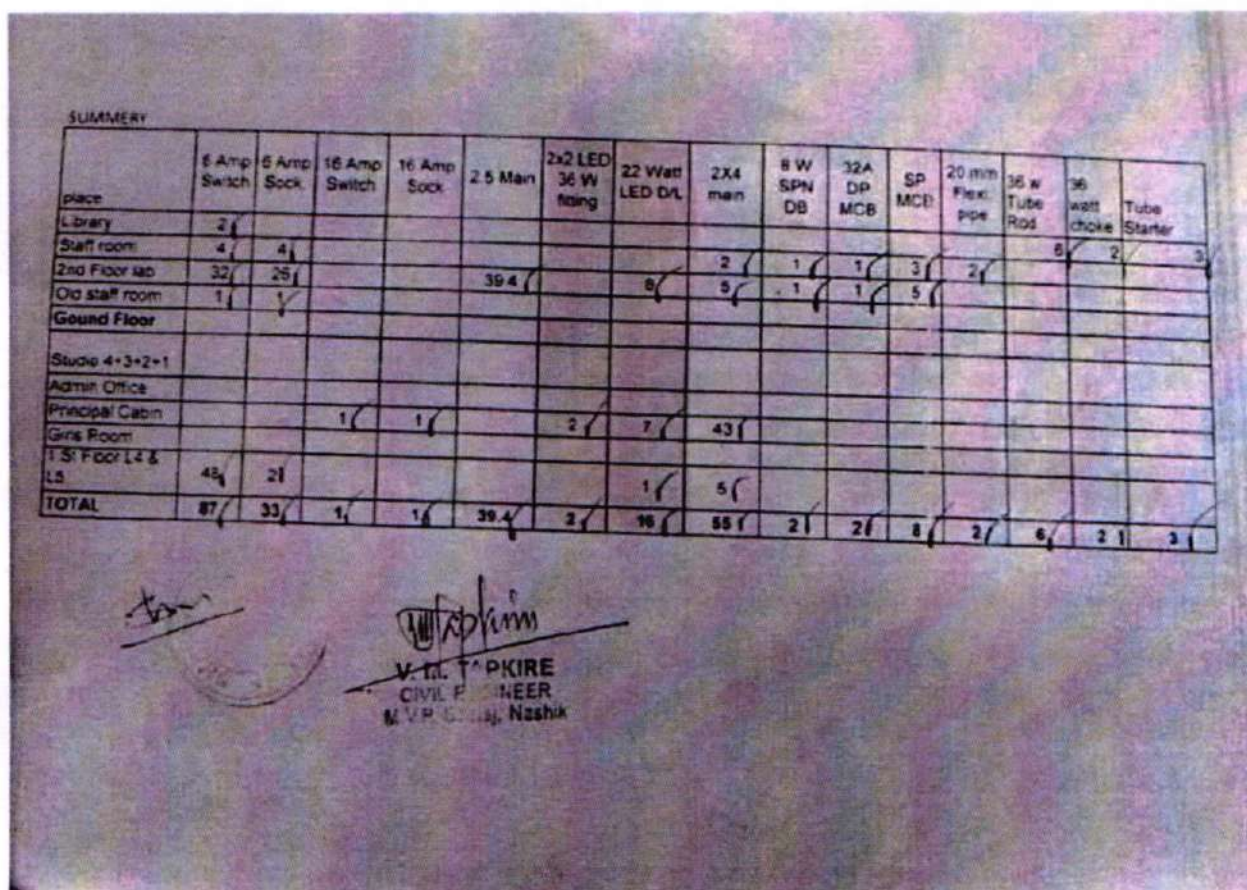 SUMMERY
place 6 Amp Switch 6 Amp Sock 16 Amp Switch 16 Amp Sock 2.5 Main 2x2 LED 36 W fitting 22 Watt LED D/L 2X4 main 8 W SPN DB 32A DP MCB SP MCB 20 mm Flexi pipe 36 w Tube Rod 36 watt choke Tube Starter
Library 2 6 2 3
Staff room 4 4 2 1 1 3 2
2nd Floor lab 32 26 39.4 8 5 1 1 5
Old staff room 1 1
Gound Floor
Studio 4+3+2+1
Admin Office
Principal Cabin 1 1 2 7 43
Girls Room
1 St Floor L4 & L5 48 2 1 5
TOTAL 87 33 1 1 39.4 2 16 55 2 2 8 2 6 2 3
CIVIL ENGINEER
Nashik